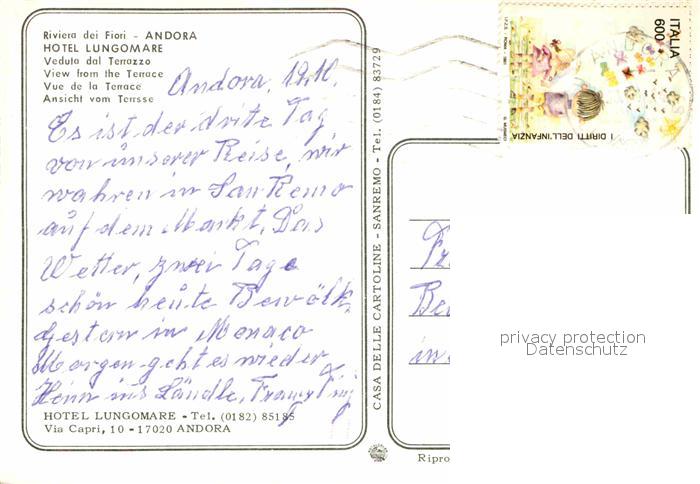 Riviera dei Fiori - ANDORA
HOTEL LUNGOMARE
Veduta dal Terrazzo
View from the Terrace
Vue de la Terrace
Ansicht vom Terrsse
Andora, 19.10.
Es ist der drite Tag
von unserer Reise, wir
wahren in San Remo
auf dem Markt. Das
Wetter, zwei Tage
schön heute Bewölk,
gestern in Monaco
Morgen geht es wieder
Heim ins Ländle,
HOTEL LUNGOMARE - Tel. (0182) 85185
Via Capri, 10 - 17020 ANDORA
CASA DELLE CARTOLINE - SANREMO - Tel. (0184) 83729
ITALIA
600
I DIRITTI DELL'INFANZIA
Fr
Be
in
privacy protection
Datenschutz
Ripro